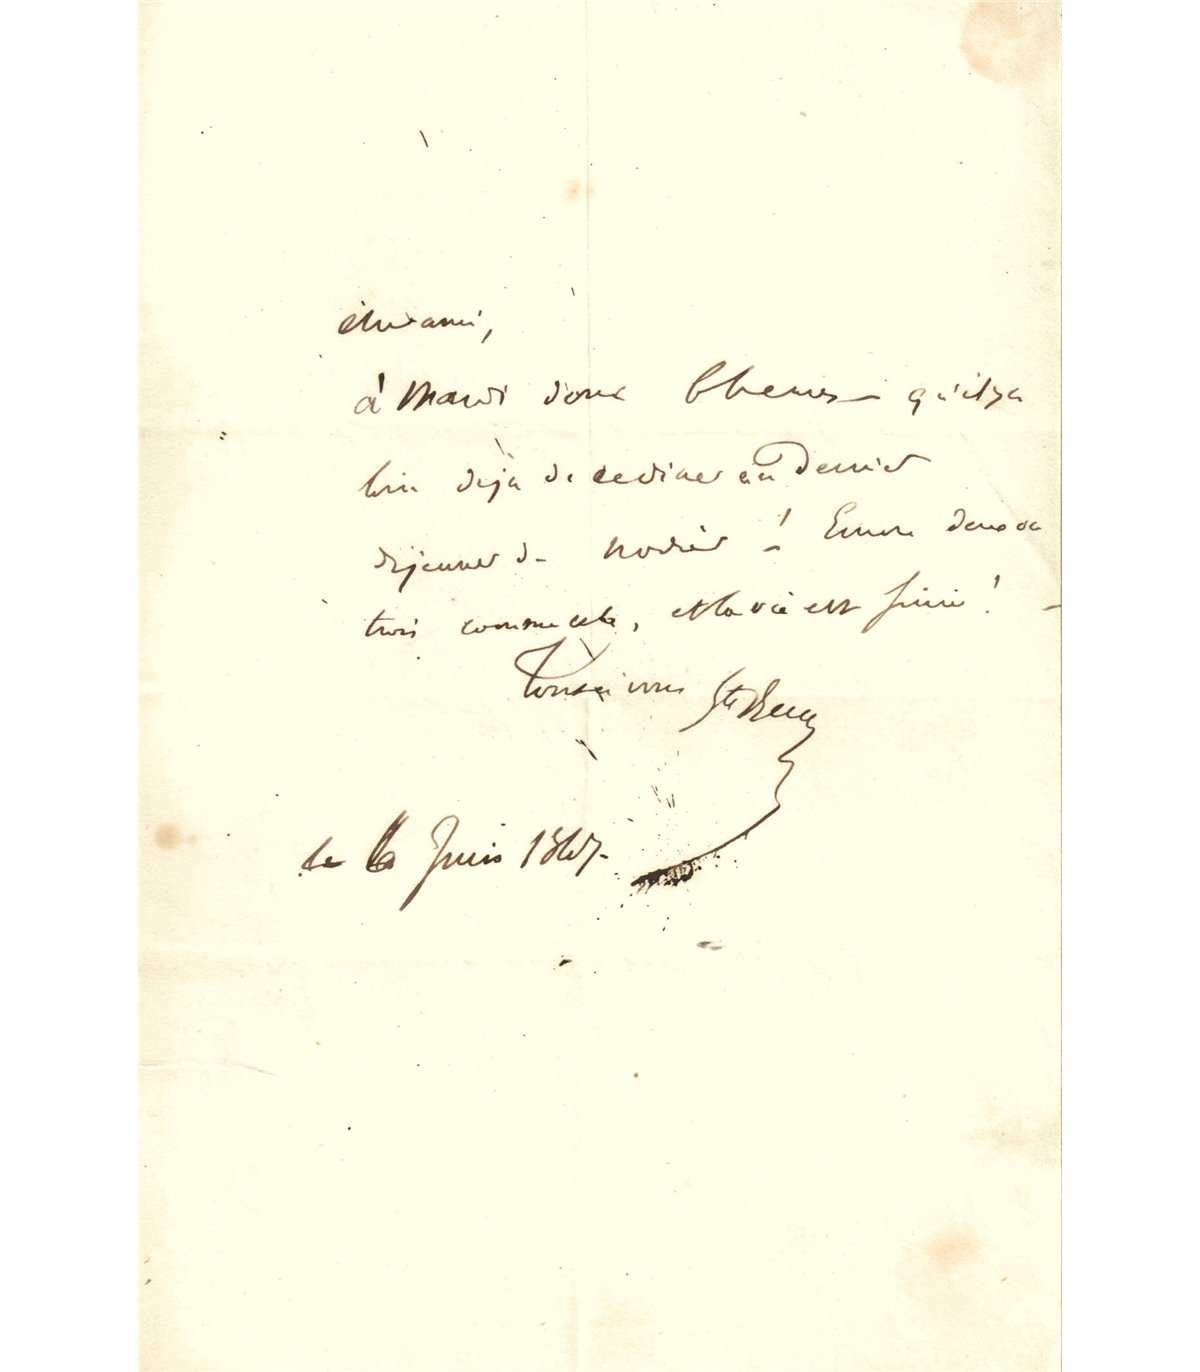 cher ami,
à Mardi donc 6 heures – qu'il y a
loin déjà de ce diner au Dernier
déjeuner de Nodier ! Encore deux ou
trois comme cela, et la vie est finie ! –
Tout à vous Ste Beuve
ce 6 Juin 1847.